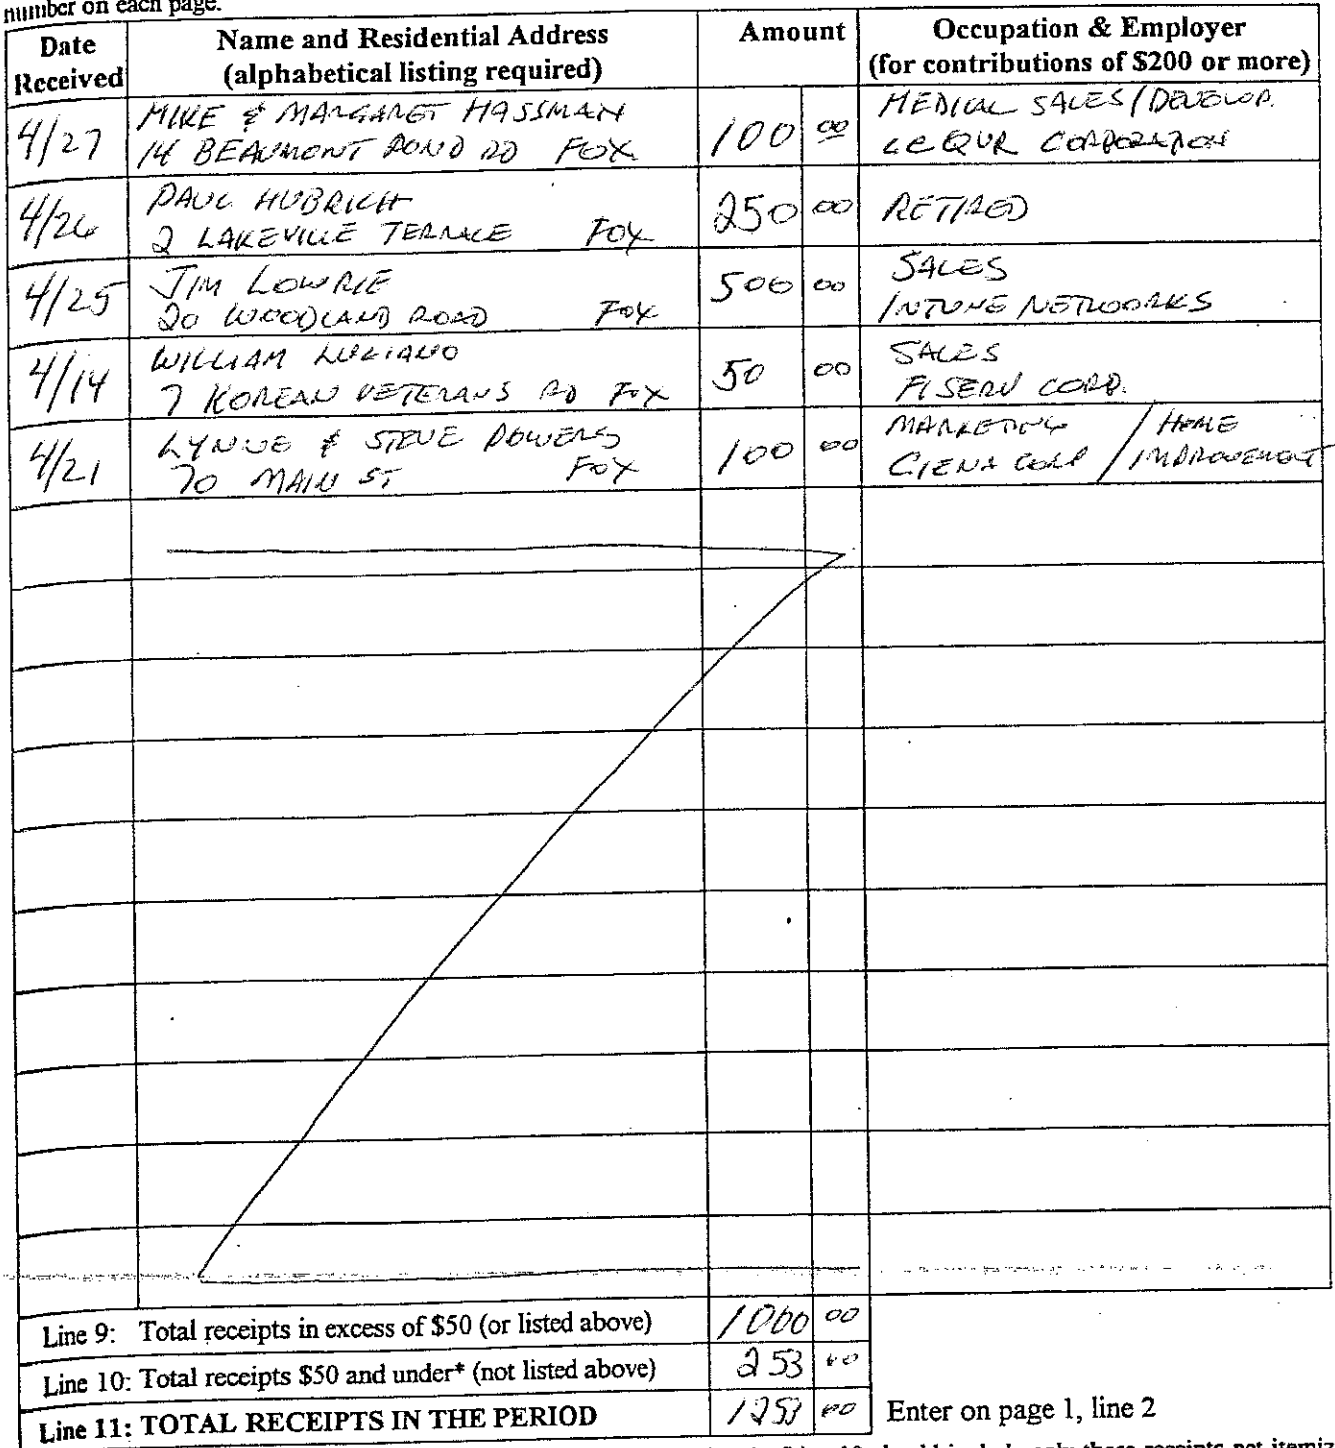 number on each page.
Date Received
Name and Residential Address (alphabetical listing required)
Amount
Occupation & Employer (for contributions of $200 or more)
4/27
MIKE & MARGARET HASSMAN
14 BEAUMONT POND RD FOX
100 00
MEDICAL SALES/DEVELOP.
LEQUR CORPORATION
4/26
PAUL HUBRICH
2 LAKEVILLE TERRACE FOX
250 00
RETIRED
4/25
JIM LOWRIE
20 WOODLAND ROAD FOX
500 00
SALES
INTUNE NETWORKS
4/14
WILLIAM LULIANO
7 KOREAN VETERANS RD FOX
50 00
SALES
FISERV CORP.
4/21
LYNNE & STEVE POWERS
70 MAIN ST FOX
100 00
MARKETING / HOME
CIENA CORP / IMPROVEMENT
Line 9: Total receipts in excess of $50 (or listed above) 1000 00
Line 10: Total receipts $50 and under* (not listed above) 253 00
Line 11: TOTAL RECEIPTS IN THE PERIOD 1253 00 Enter on page 1, line 2